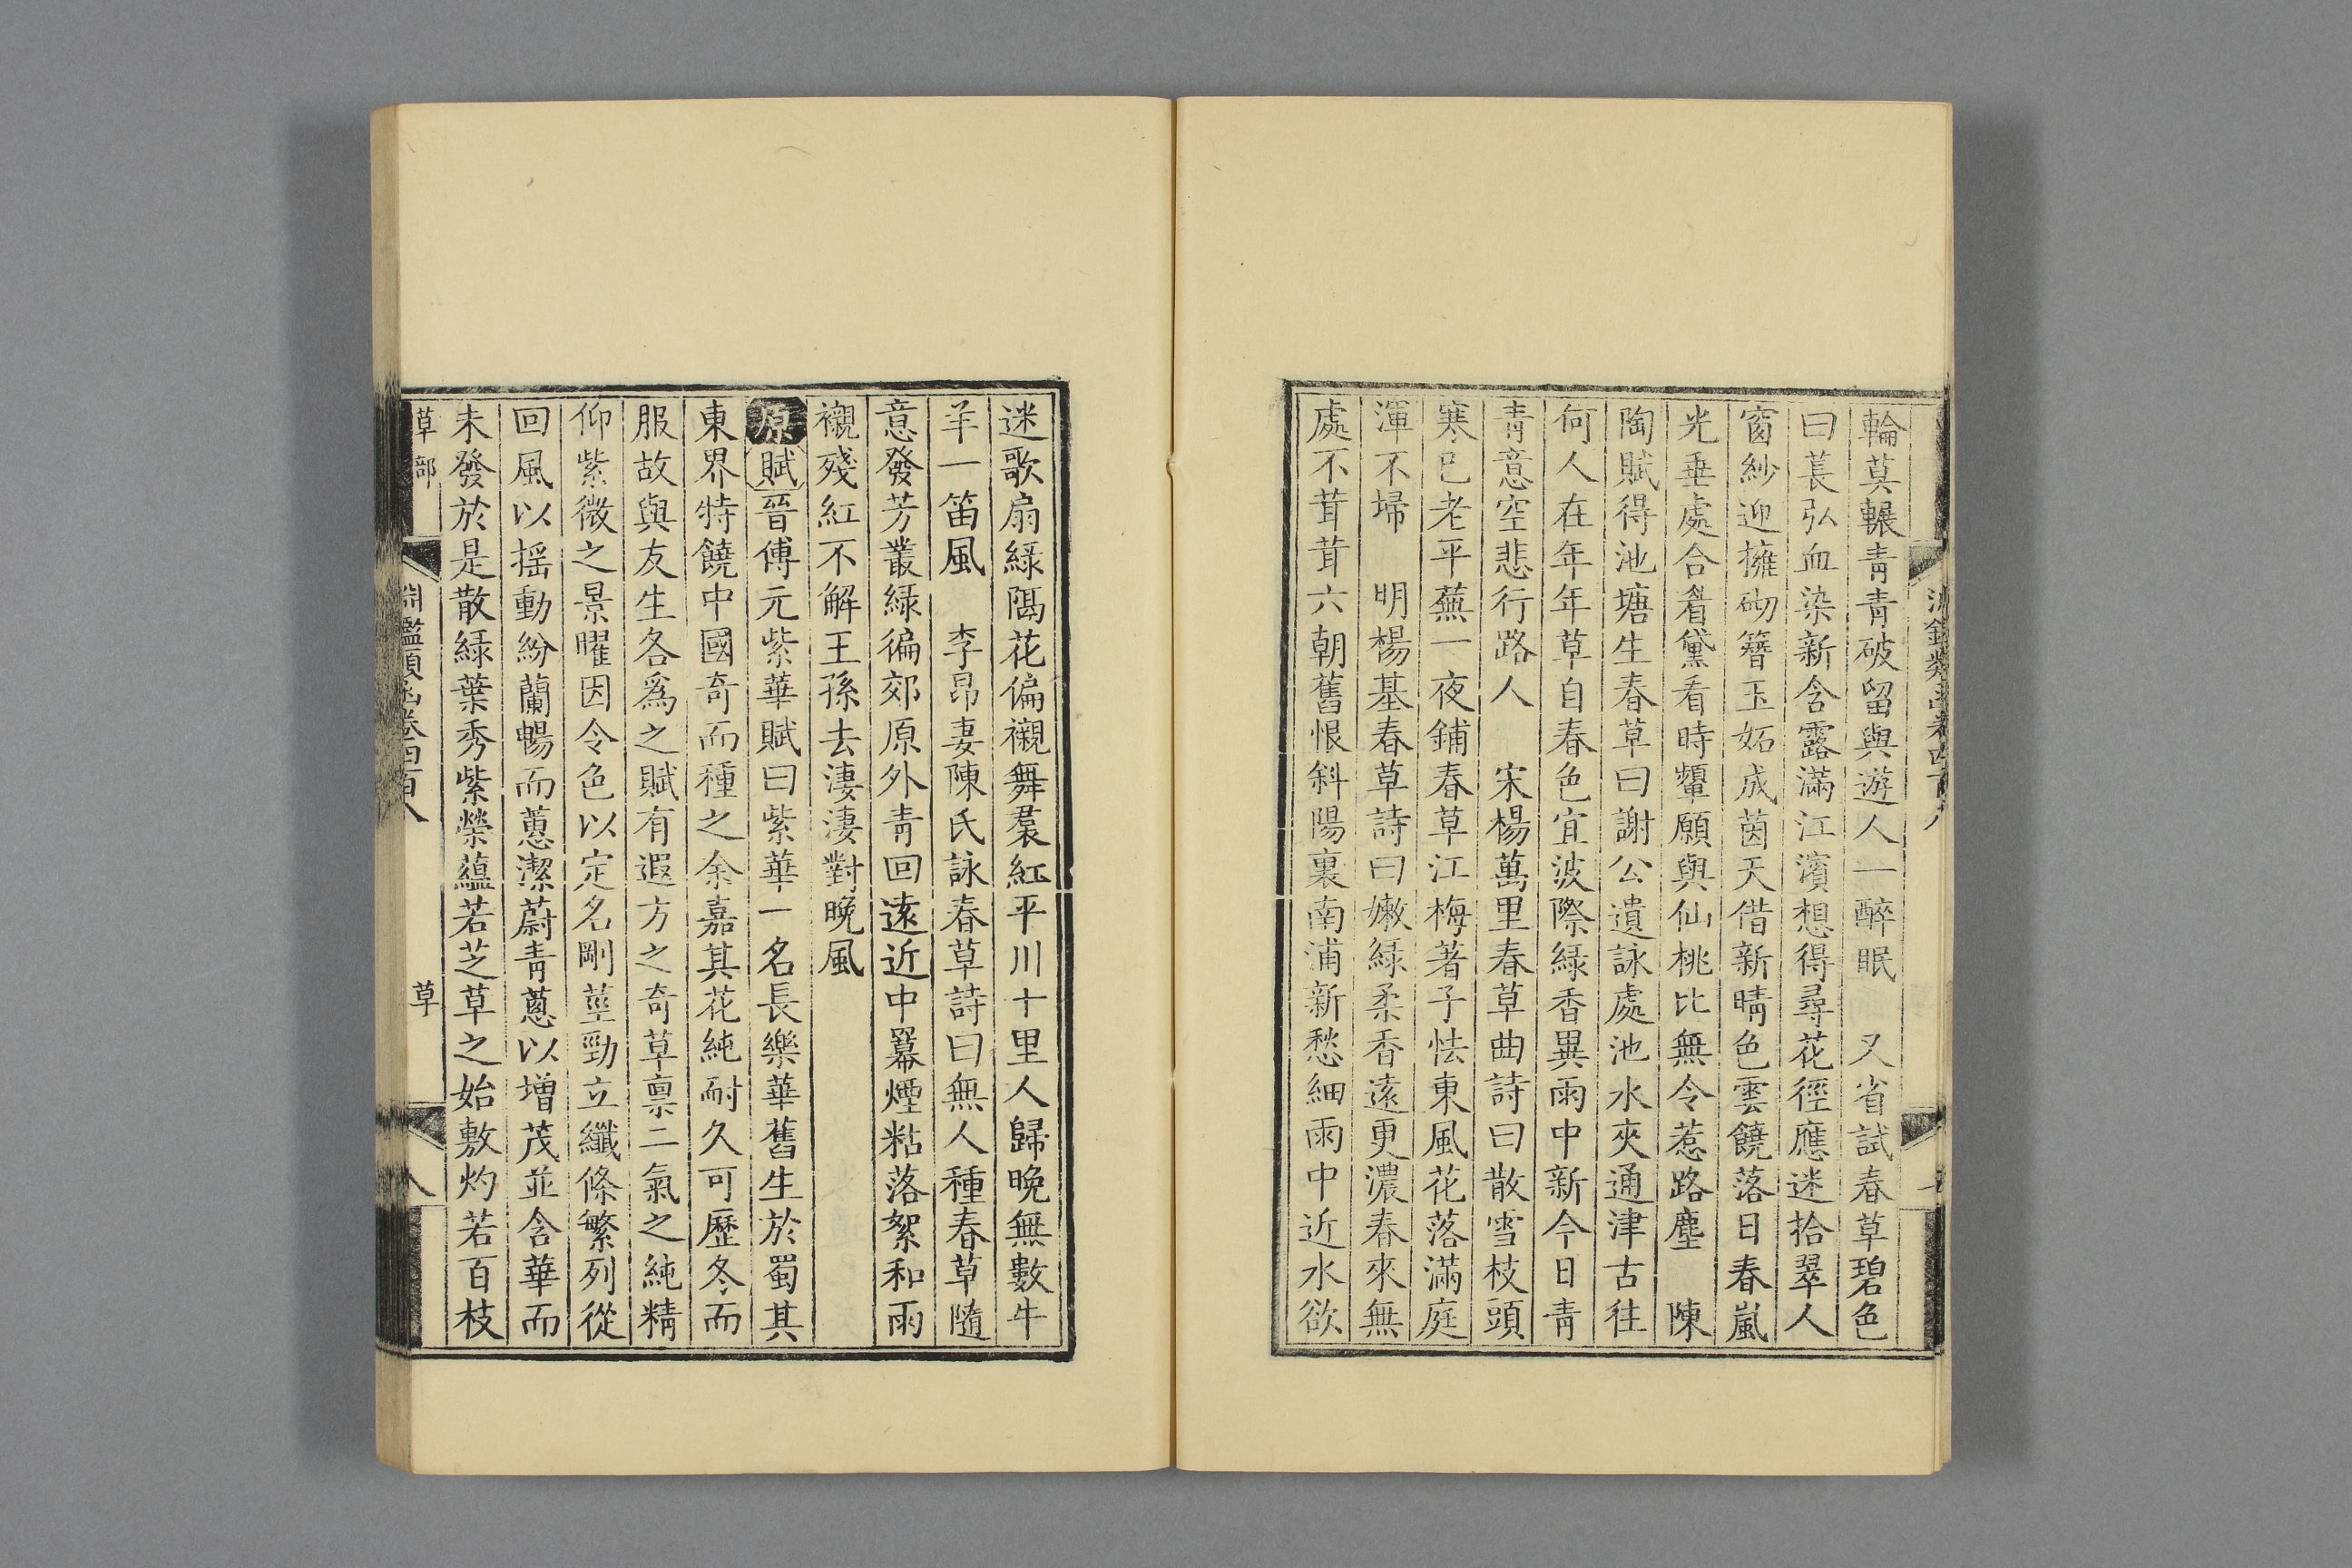 輪莫輾青青破留與遊人一醉眠　又省試春草碧色
曰萇弘血染新含露滿江濱想得尋花徑應迷拾翠人
窗紗迎擁砌簪玉妬成茵天借新晴色雲饒落日春嵐
光垂處合眉黛看時顰願與仙桃比無令惹路塵　陳
陶賦得池塘生春草曰謝公遺詠處池水夾通津古往
何人在年年草自春色宜波際綠香異雨中新今日青
青意空悲行路人　宋楊萬里春草曲詩曰散雪枝頭
寒已老平蕪一夜鋪春草江梅著子怯東風花落滿庭
渾不埽　明楊基春草詩曰嫩綠柔香遠更濃春來無
處不茸茸六朝舊恨斜陽裏南浦新愁細雨中近水欲
迷歌扇綠隔花偏襯舞裠紅平川十里人歸晚無數牛
羊一笛風　李昂妻陳氏詠春草詩曰無人種春草隨
意發芳叢綠徧郊原外青回遠近中羃煙粘落絮和雨
襯殘紅不解王孫去淒淒對晚風
原賦晉傅元紫華賦曰紫華一名長樂華舊生於蜀其
東界特饒中國奇而種之余嘉其花純耐久可歷冬而
服故與友生各爲之賦有遐方之奇草禀二氣之純精
仰紫微之景曜因令色以定名剛莖勁立纖條繁列從
回風以搖動紛蘭暢而蕙潔蔚青蔥以增茂並含華而
未發於是散綠葉秀紫榮蘊若芝草之始敷灼若百枝
草部　淵鑑類函卷四百八　草　八